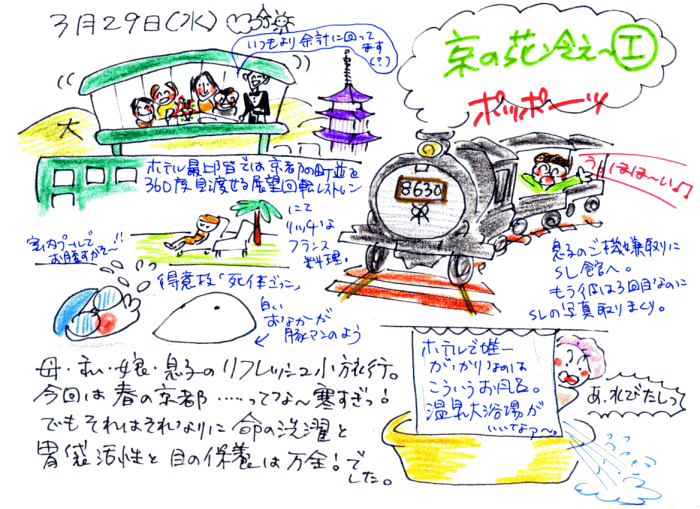 3月29日(水)
いつもより余計に回って
ます
(?)
京の花冷え〜①
ポッポーッ
大
ホテル最上階では京都の町並を
360度見渡せる展望回転レストラン
にて
リッチな
フランス
料理。
8630
うほほ〜い♪
室内プールで
お腹すかそ〜!!
得意技「死体ごっこ」
白い
おなか〜が
豚マンのよう
息子のご機嫌取りに
SL館へ。
もう彼は3回目なのに
SLの写真取りまくり。
ホテルで唯一
がっかりなのは
こういうお風呂。
温泉大浴場が
いいなァ〜。
あ、れびたしって
母・私・娘・息子のリフレッシュ小旅行。
今回は春の京都……ってな〜寒すぎっ!
でもそれはそれなりに命の洗濯と
胃袋活性と目の保養は万全!でした。